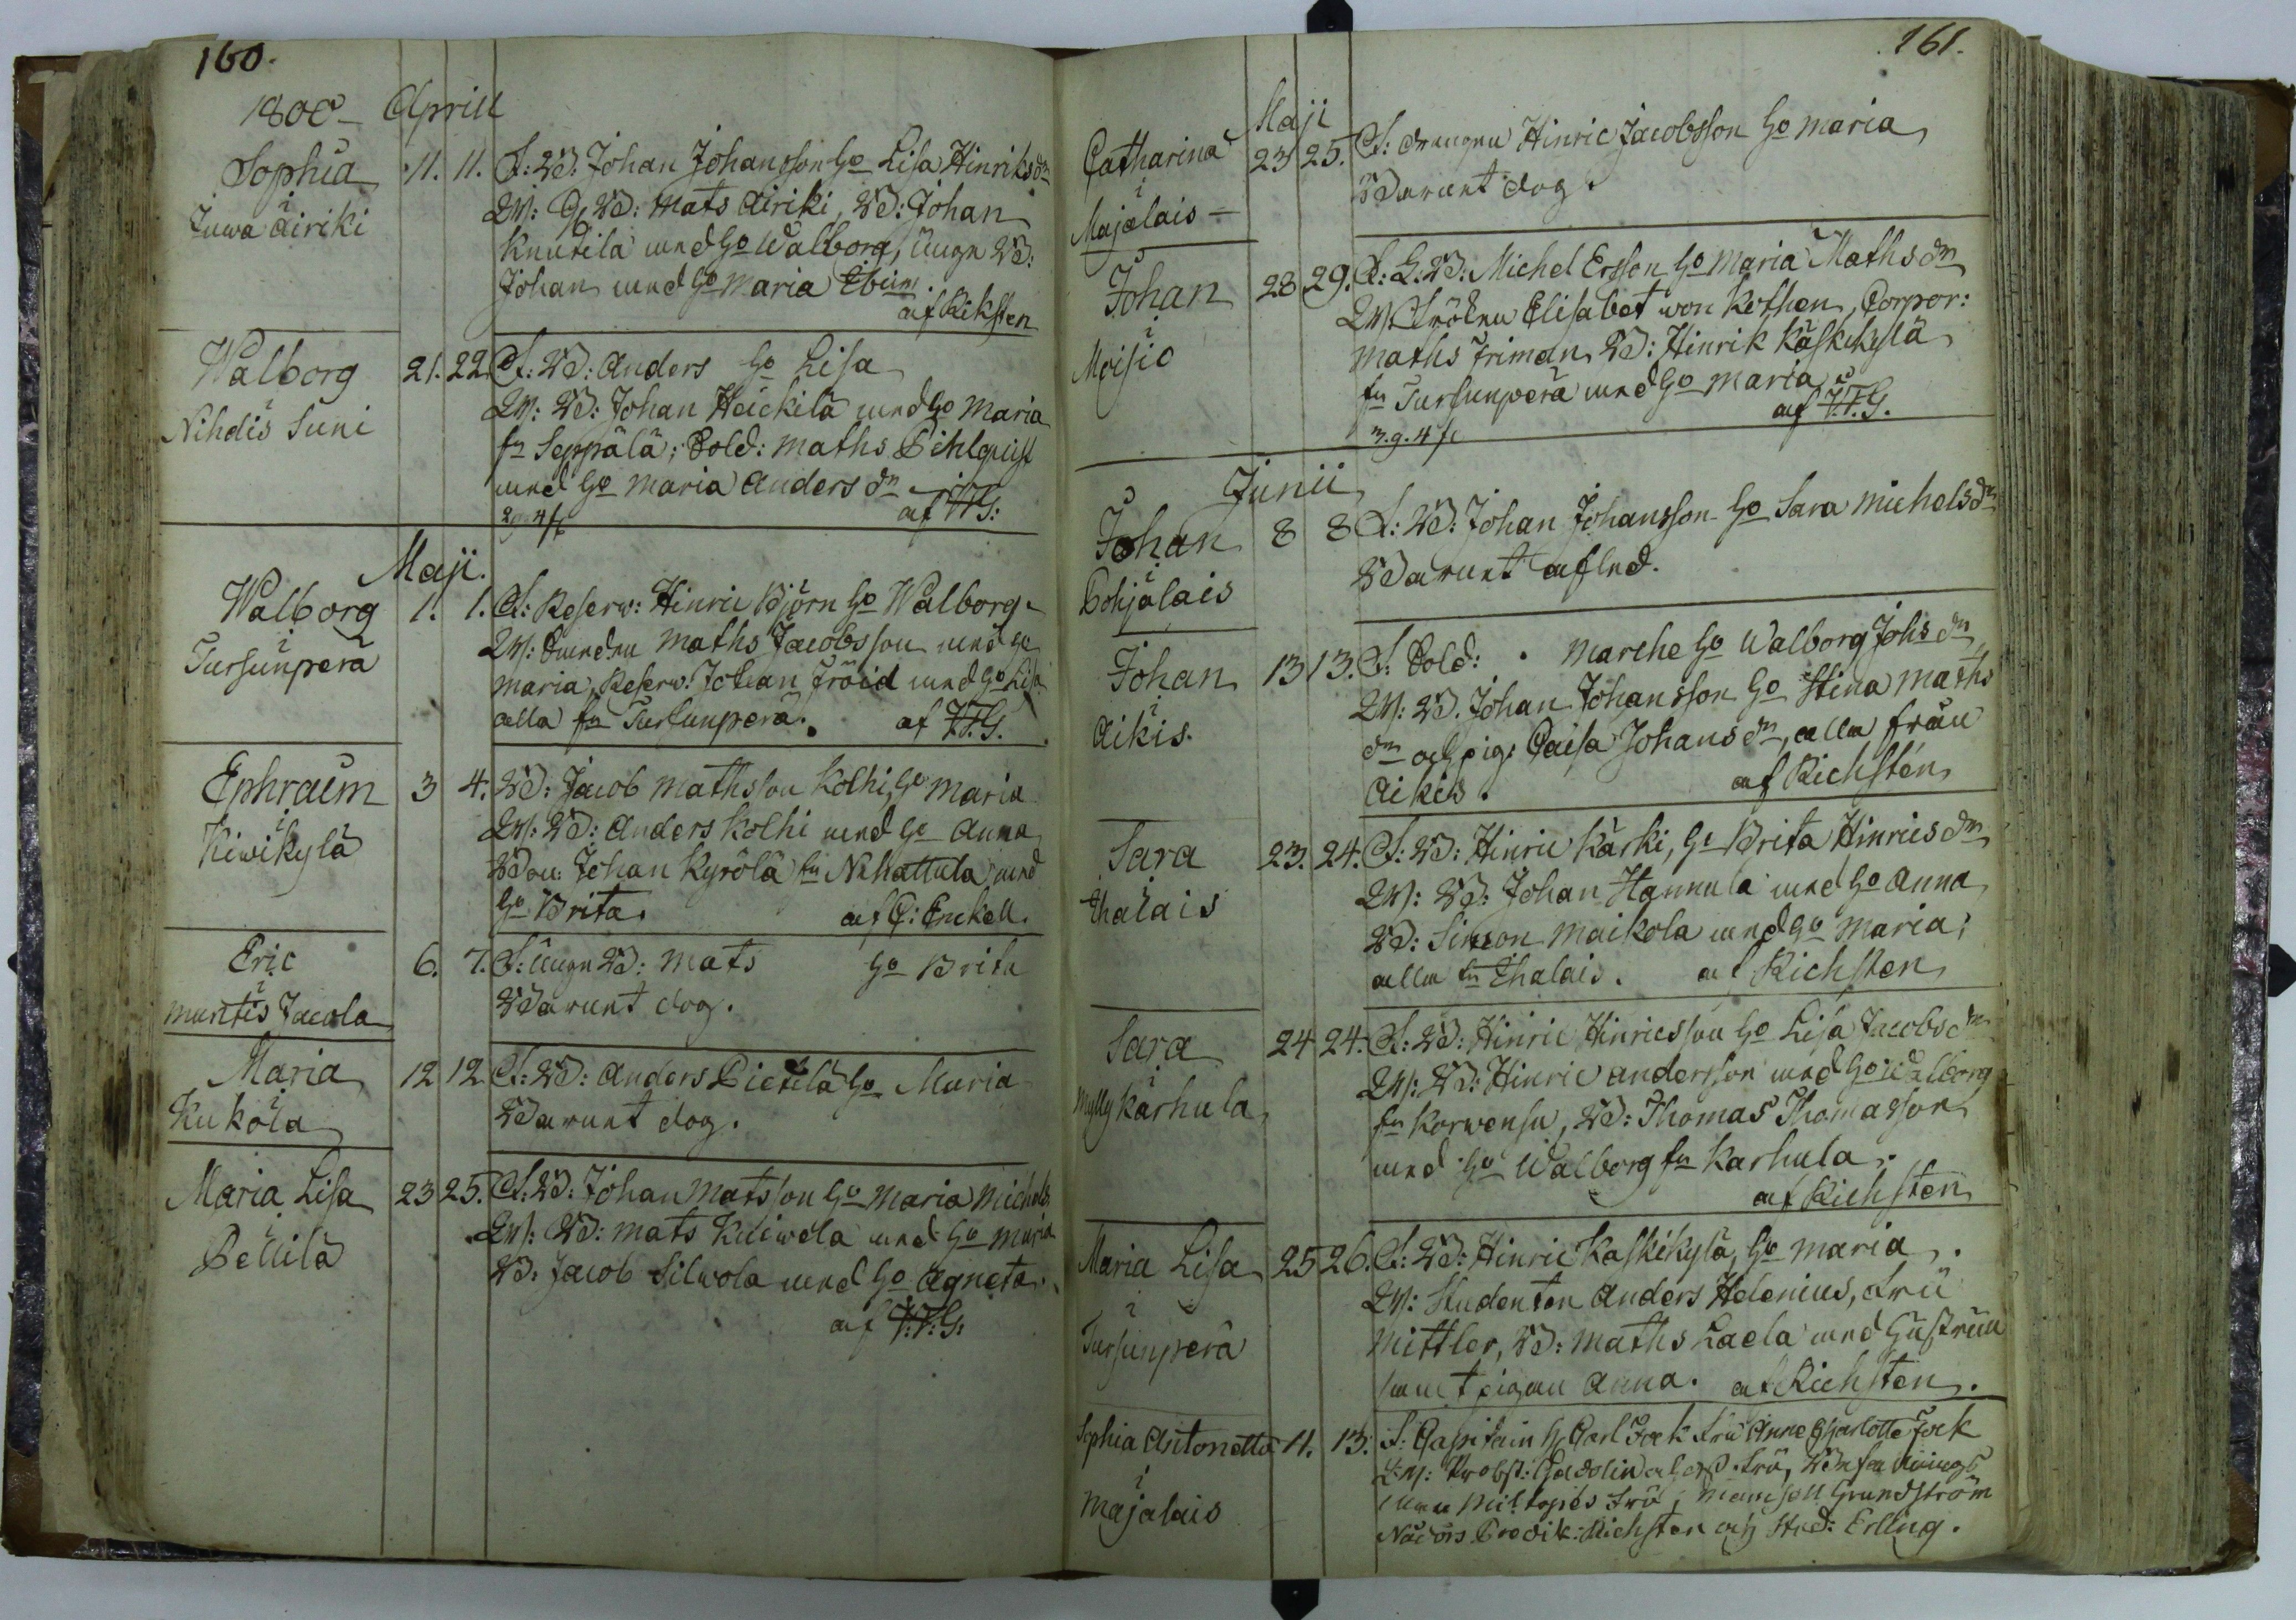 160.
1800 - Aprill
Sophia 11. 11. F: Bd: Johan Johansson Ho Lisa Hinriksdr
i
Juwa Äiriki
W: Gl Bd: Mats Äiriki, Bd: Johan
Knutila med Ho Walborg, Ungn Bd:
Johan med Ho Maria Ibim.
af Riksten
Walborg 21. 22. F: Bd: Anders Ho Lisa
i
Nihdis Suni
W: Bd: Johan Heickilä med Ho Maria
fn Seppälä; Sold: Maths Pihlquist
med Ho Maria Andersdr
af J.T.G:
Maji.
Walborg 1. 1. F: Reserv: Hinric Björn Ho Walborg.
i
Tursunperä
W: Maths Jacobsson med Ho
Maria, Reserv. Johan Fröid med Ho Lisa
alla fn Tursunperä. af J.T.G.
Ephraim 3 4. Bd: Jacob Mathsson Kolhi, Ho Maria
i
Kiwikylä
W: Bd: Anders Kolhi med Ho Anna
Bdn: Johan Kyrölä fn Nihattula med
Ho Brita. af C: Enckell.
Eric 6. 7. F: Ungn Bd: Mats Ho Brita
i
Muntis Jacola
Barnet dog.
Maria 12 12 F: Bd: Anders Pietilä Ho Maria
i
Kukola
Barnet dog.
Maria Lisa 23 25. F: Bd: Johan Matsson Ho Maria Michels
i
Pellilä
W: Bd: Mats Kiliwola med Ho Maria
Bd. Jacob Silwola med Ho Agneta.
af J:T:G:
161.
Maji
Catharina 23 25. F: drengen Hinric Jacobsson Ho Maria
i
Majalais -
Barnet dog.
Johan 28 29. F: L: Bd: Michel Ersson Ho Maria Mathsdr
i
Moisio
W: Fröken Elisabet von Kothen, Corpor:
Maths Friman, Bd: Hinrik Kaskikylä
fn Tursunperä med Ho Maria
af J.T.G.
Junii
Johan 8 8 F: Bd: Johan Johansson Ho Sara Michelsdr
i
Pohjalais
Barnet afled.
Johan 13 13. F: Sold: . Marche Ho Walborg Johsdr
i
Äikis.
W: Bd. Johan Johansson Ho Stina Maths
dr och pig: Caisa Johansdr, alla från
Äikis. af Richsten
Sara 23. 24. F: Bd: Hinric Kärki, Ho Brita Hinricsdr
i
Ihalais
W: Bd: Johan Hannula med Ho Anna
Bd: Simon Maikola med Ho Maria;
alla fn Ihalais. af Richsten
Sara 24 24. F: Bd: Hinric Hinricsson Ho Lisa Jacobsdr
i
Mylly Karhula
W: Bd: Hinric Andersson med Ho Walborg
fn Korwensu, Bd: Thomas Thomasson
med Ho Walborg fn Karhula.
af Richsten
Maria Lisa 25 26. F: Bd: Hinric Kaskikylä, Ho Maria.
i
Tursunperä
W: Studenten Anders Helenius, Fru
Mittler, Bd: Maths Laela med Hustrun
samt pigan Anna. af Richsten.
Sophia Antonetta 11. 13. F: Capitain H Carl Fock Fru Anna Charlotta Fock
i
Majalais
W: Probst: Gadolin och dess Fru,
Fru, Mamsell Grundström
Nådårs Predik: Richsten och Stud: Erling.